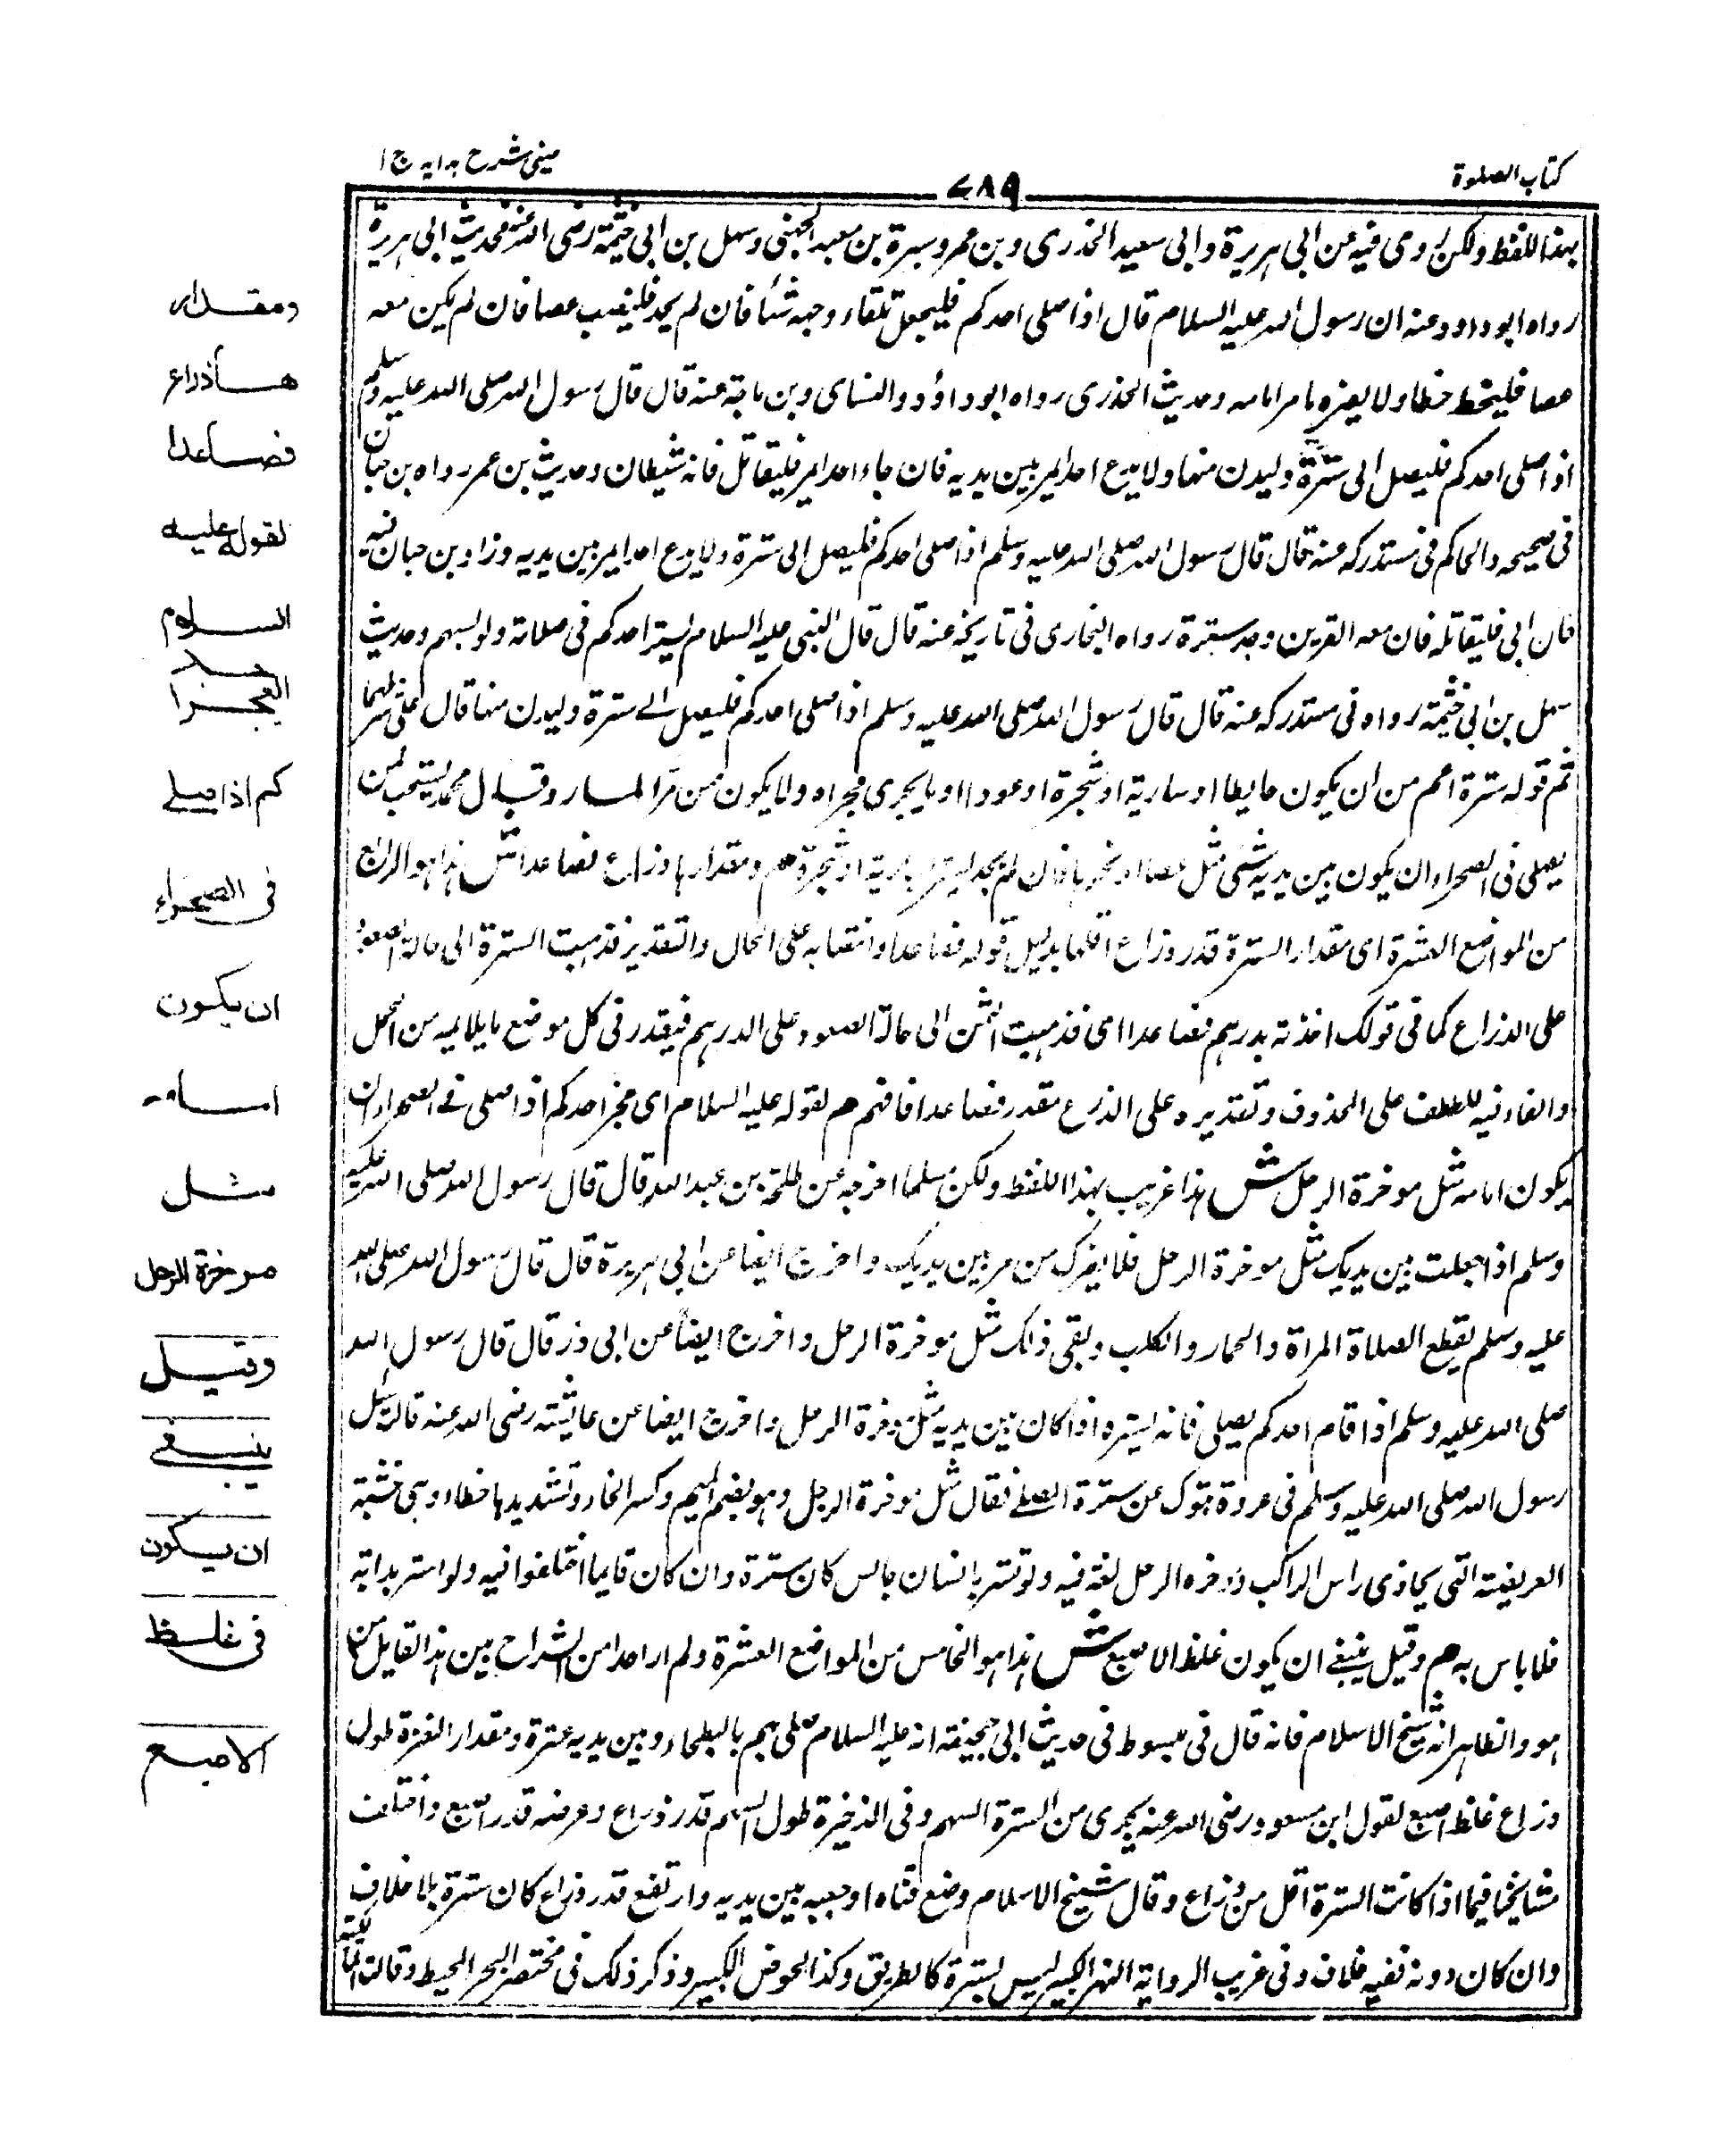 كتاب الصلوة
٧٨٩
عینی شرح ہدایہ ج ١
بهذا اللفظ ولكن روى فيه عن ابى هريرة وابى سعيد الخدرى وبن عمر وسبرة بن معبد الجهنى وسهل بن ابى حثمة رضى الله عنهم فحديث ابى هريرة
رواه ابو داود عنه ان رسول الله عليه السلام قال اذا صلى احدكم فليجعل تلقاء وجهه شئا فان لم يجد فلينصب عصا فان لم يكن معه
عصا فليخط خطا ولا يضره ما مر امامه وحديث الخدرى رواه ابو داؤد والنساى وبن ماجة عنه قال قال رسول الله صلى الله عليه وسلم
اذا صلى احدكم فليصل الى سترة وليدن منها ولا يدع احدا يمر بين يديه فان جاء احد يمر فليقاتل فانه شيطان وحديث بن عمر رواه بن حبان
فى صحيحه والحاكم فى مستدركه عنه قال قال رسول الله صلى الله عليه وسلم اذا صلى احدكم فليصل الى سترة ولا يدع احدا يمر بين يديه وزاد بن حبان فيه
فان ابى فليقاتله فان معه القرين وحديث سبرة رواه البخارى فى تاريخه عنه قال قال النبى عليه السلام ليستتر احدكم فى صلاته ولو بسهم وحديث
سهل بن ابى حثمة رواه فى مستدركه عنه قال قال رسول الله صلى الله عليه وسلم اذا صلى احدكم فليصل الے سترة وليدن منها قال على شرطهما
ثم قوله سترة اعم من ان يكون حايطا او سارية او شجرة او عودا او ما يجرى مجراه ولا يكون ممن مرا لمسار وقال محمد يستحب لمن
يصلى فى الصحراء ان يكون بين يديه شئى مثل عصا او نحوها فان لم يجد يستتر بسارية او شجرة هم ومقدارها ذراع فصاعدا ش هذا هو الرابع
من المواضع العشرة اى مقدار السترة قدر ذراع اقلها بدليل قوله فصاعدا وانتصابه على الحال والتقدير فذهبت السترة الى حالة الصعود
على الذراع كما فى قولك اخذته بدرهم فصاعدا اى فذهبت الثمن الى حالة الصعود على الدرهم فيقدر فى كل موضع ما يلايمه من المحل
والفاء فيه للعطف على المحذوف وتقديره على الذرع مقدر فصاعدا فافهم هم لقوله عليه السلام اى عجز احدكم اذا صلى فے الصحراء ان
يكون امامه مثل موخرة الرحل ش هذا غريب بهذا اللفظ ولكن مسلما اخرجه عن طلحة بن عبد الله قال قال رسول الله صلى الله عليه
وسلم اذا جعلت بين يديك مثل موخرة الرحل فلا يضرك من مر بين يديك واخرج ايضا عن ابى هريرة قال قال رسول الله صلى الله
عليه وسلم يقطع الصلاة المراة والحمار والكلب وبقى ذلك مثل موخرة الرحل واخرج ايضاً عن ابى ذر قال قال رسول الله
صلى الله عليه وسلم اذا قام احدكم يصلى فانه يستره اذا كان بين يديه مثل موخرة الرحل واخرج ايضا عن عايشة رضى الله عنه قالت سئل
رسول الله صلى الله عليه وسلم فى غزوة تبوك عن سترة المصلے فقال مثل موخرة الرحل وهو بضم الميم وكسر الخاء وتشديدها خطاء وهى خشبة
العريضة التى يحاذى راس الراكب وموخره الرحل لغة فيه ولو تستر بانسان جالس كان سترة وان كان قايما اختلفوا فيه ولو استتر بدابة
فلا باس به هم وقيل ينبغے ان يكون غلظ الاصبع ش هذا هو الخامس من المواضع العشرة ولم ار احدا من الشراح بين هذا القايل من
هو والظاهر انه شيخ الاسلام فانه قال فى مبسوط فى حديث ابى جحيفة انه عليه السلام صلى بهم بالبطحاء وبين يديه عنزة ومقدار العنزة طول
ذراع غلظ اصبع لقول ابن مسعود رضى الله عنه يجرى من السترة السهم وفى الذخيرة طول السهم قدر ذراع وعرضه قدر اصبع واختلف
مشايخنا فيما اذا كانت السترة اقل من ذراع وقال شيخ الاسلام وضع قناه او جعبه بين يديه وارتفع قدر ذراع كان سترة بلا خلاف
وان كان دونه ففيه خلاف وفى غريب الرواية النهر الكبير ليس بسترة كالطريق وكذا الحوض الكبير وذكر ذلك فى مختصر البحر المحيط وقالت المالكية
ومقدار
هـا ذراع
فصاعدا
لقوله عليه
السلام
العجز ا
حدكم اذا صلے
فى الصحراء
ان يكون
امامه
مثل
موخرة الرحل
وقيل
ينبغے
ان يكون
فى غلظ
الاصبع